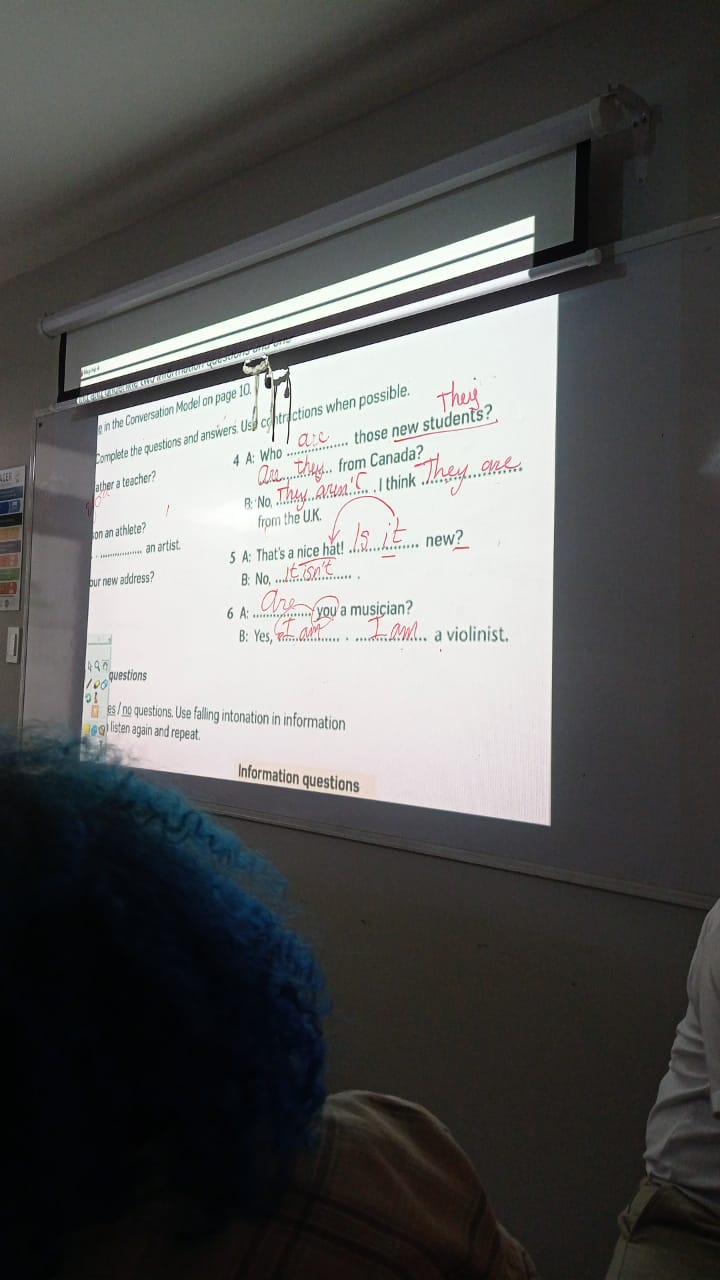 e in the Conversation Model on page 10.
Complete the questions and answers. Use contractions when possible.
ather a teacher?
son an athlete?
. .............. an artist.
our new address?
They
4 A: Who ....are.... those new students?
Are they.. from Canada?
B: No, They aren't. . I think They are
from the U.K.
5 A: That's a nice hat! ..Is it.. new?
B: No, ..It isn't.. .
6 A: ..Are.. you a musician?
B: Yes, ..I am.. . ..I am.. a violinist.
questions
es / no questions. Use falling intonation in information
listen again and repeat.
Information questions